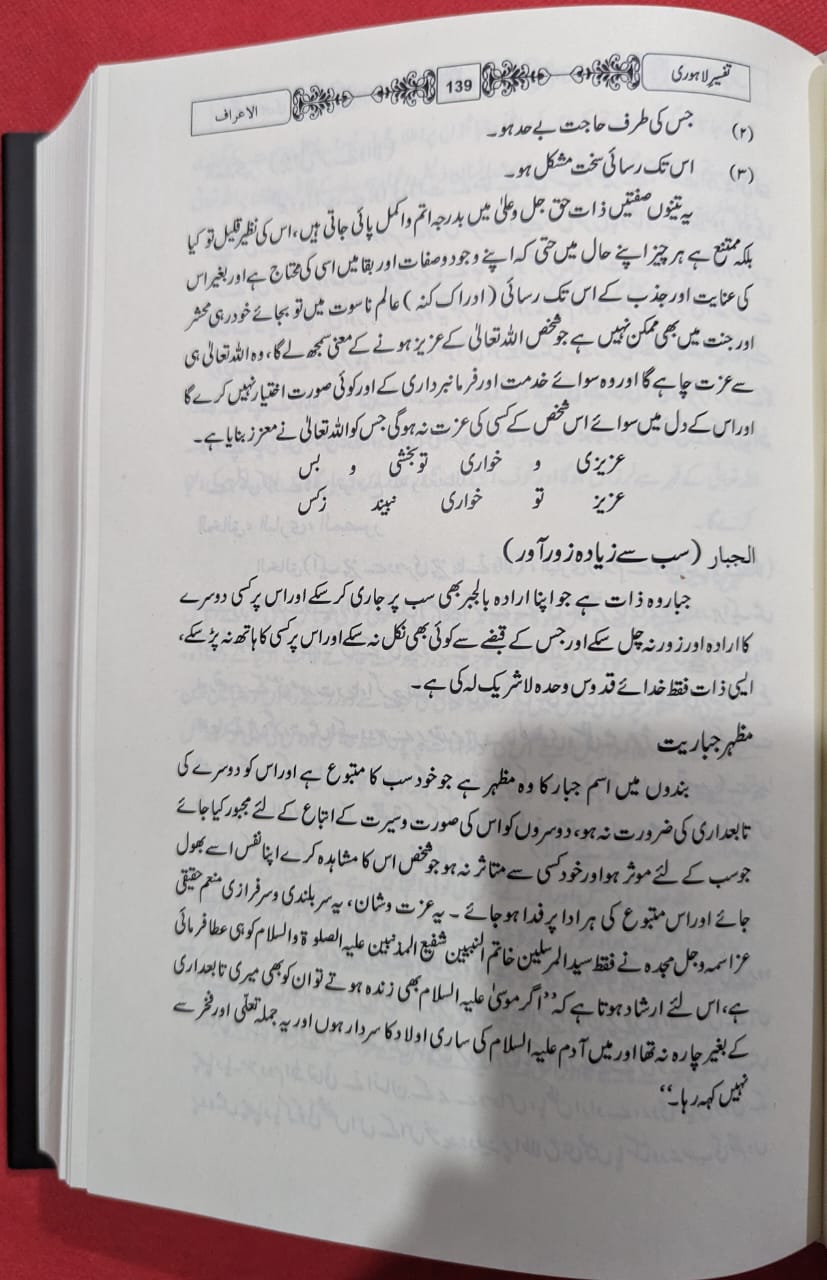 تفسیر لاہوری
139
الاعراف
(۲) جس کی طرف حاجت بے حد ہو۔
(۳) اس تک رسائی سخت مشکل ہو۔
یہ تینوں صفتیں ذات حق جل وعلیٰ میں بدرجہ اتم و اکمل پائی جاتی ہیں، اس کی نظیر قلیل تو کیا
بلکہ ممتنع ہے ہر چیز اپنے حال میں حتی کہ اپنے وجود و صفات اور بقا میں اسی کی محتاج ہے اور بغیر اس
کی عنایت اور جذب کے اس تک رسائی (ادراک کنہ) عالم ناسوت میں تو بجائے خود رہی محشر
اور جنت میں بھی ممکن نہیں ہے جو شخص اللہ تعالیٰ کے عزیز ہونے کے معنی سمجھ لے گا، وہ اللہ تعالیٰ ہی
سے عزت چاہے گا اور وہ سوائے خدمت اور فرمانبرداری کے اور کوئی صورت اختیار نہیں کرے گا
اور اس کے دل میں سوائے اس شخص کے کسی کی عزت نہ ہوگی جس کو اللہ تعالیٰ نے معزز بنایا ہے۔
عزیزی و خواری تو بخشی و بس
عزیز تو خواری نبیند زکس
الجبار (سب سے زیادہ زور آور)
جبار وہ ذات ہے جو اپنا ارادہ بالجبر بھی سب پر جاری کرسکے اور اس پر کسی دوسرے
کا ارادہ اور زور نہ چل سکے اور جس کے قبضے سے کوئی بھی نکل نہ سکے اور اس پر کسی کا ہاتھ نہ پڑسکے،
ایسی ذات فقط خدائے قدوس وحدہ لاشریک لہ کی ہے۔
مظہر جباریت
بندوں میں اسم جبار کا وہ مظہر ہے جو خود سب کا متبوع ہے اور اس کو دوسرے کی
تابعداری کی ضرورت نہ ہو، دوسروں کو اس کی صورت و سیرت کے اتباع کے لئے مجبور کیا جائے
جو سب کے لئے موثر ہو اور خود کسی سے متاثر نہ ہو جو شخص اس کا مشاہدہ کرے اپنا نفس اسے بھول
جائے اور اس متبوع کی ہر ادا پر فدا ہو جائے ۔ یہ عزت و شان، یہ سربلندی و سرفرازی منعم حقیقی
عز اسمہ و جل مجدہ نے فقط سید المرسلین خاتم النبیین شفیع المذنبین علیہ الصلوۃ والسلام کو ہی عطا فرمائی
ہے، اس لئے ارشاد ہوتا ہے کہ ’’اگر موسیٰ علیہ السلام بھی زندہ ہوتے تو ان کو بھی میری تابعداری
کے بغیر چارہ نہ تھا اور میں آدم علیہ السلام کی ساری اولاد کا سردار ہوں اور یہ جملہ تعلّی اور فخر سے
نہیں کہہ رہا۔‘‘